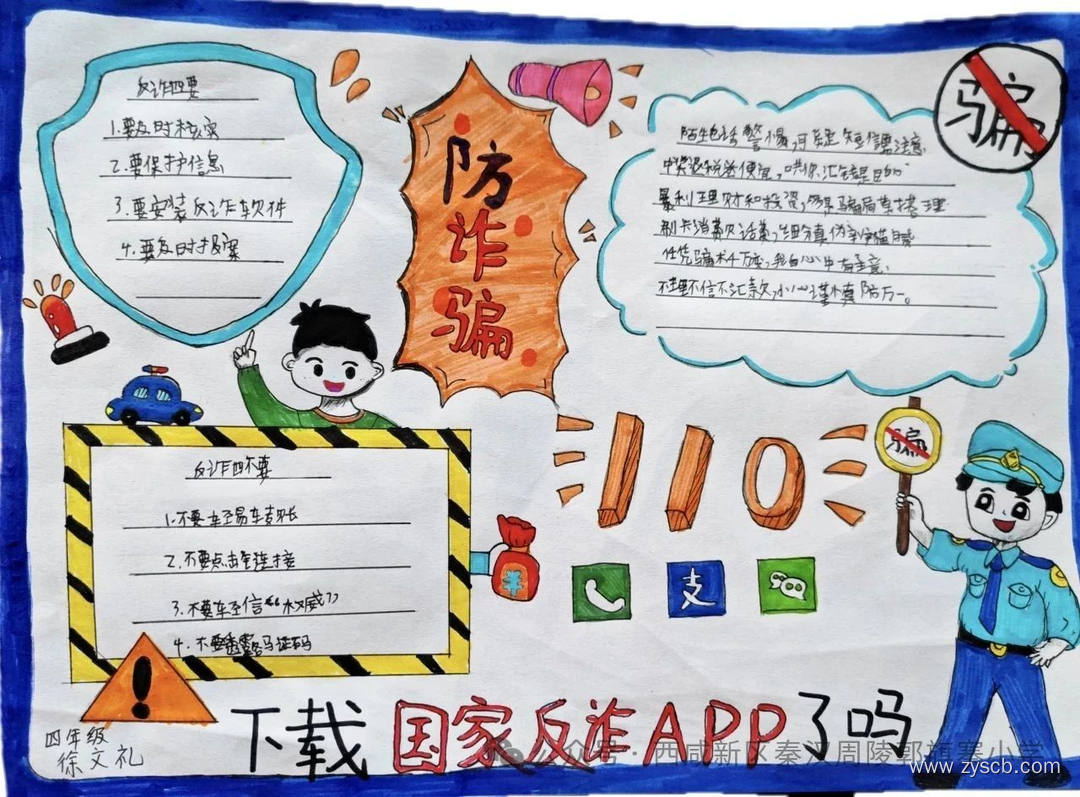 反诈四要
1.要及时核实
2.要保护信息
3.要安装反诈软件
4.要及时报案
防
诈
骗
骗
陌生电话警惕,可疑短信需注意
中奖退税送便宜,哄你汇钱是目的
暴利理财和投资,多是骗局莫搭理
刷卡消费欠话费,细分真伪
任凭骗术千万变,我自心中有主意
不理不信不汇款,小心谨慎防万一。
反诈四不要
1.不要轻易转账
2.不要点击链接
3.不要轻信“权威”
4.不要透露验证码
110
骗
支
下载国家反诈APP了吗
四年级
徐文礼
公众号·西咸新区秦汉周陵郭旗寨小学
www.zyscb.com